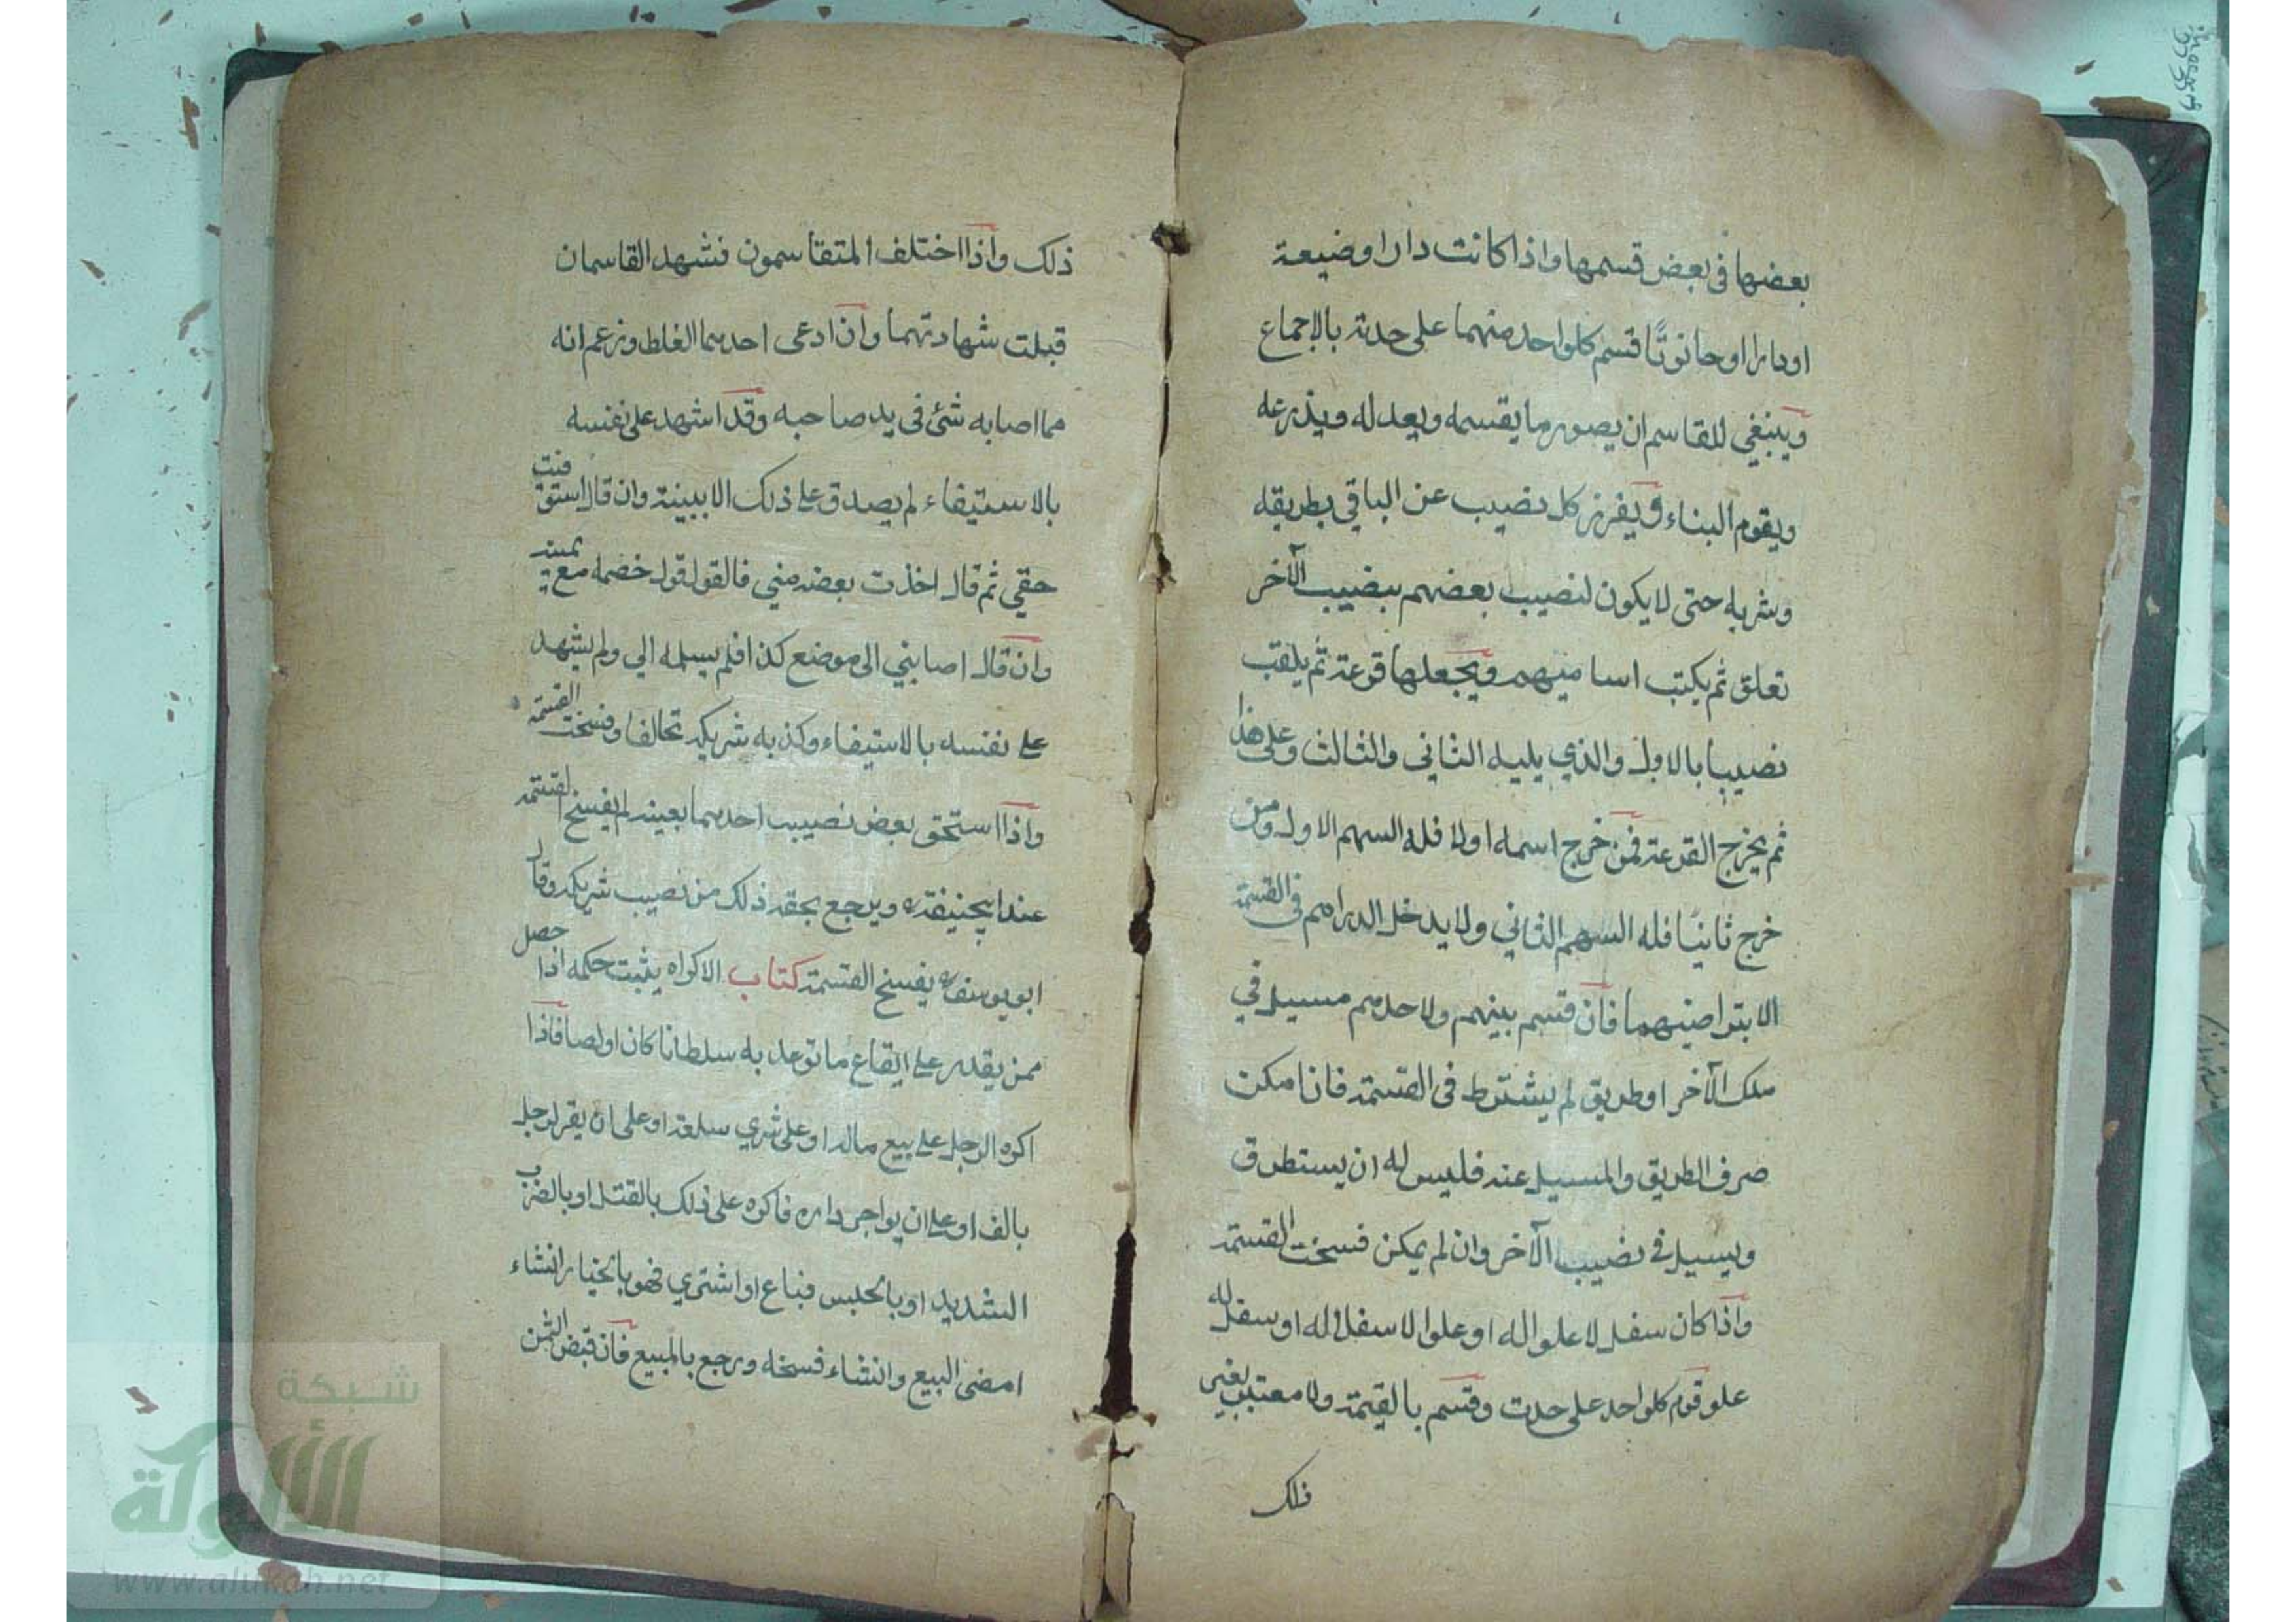 بعضها فى بعض قسمها واذا كانت دارا وضيعة
او دارا او حانوتًا قسم كلواحد منهما على حدته بالاجماع
وينبغي للقاسم ان يصور ما يقسمه ويعدله ويذرعه
ويقوم البناء ويفرز كل نصيب عن الباقي بطريقه
وشربه حتى لا يكون لنصيب بعضهم بنصيب الآخر
تعلق ثم يكتب اساميهم ويجعلها قرعة ثم يلقب
نصيبا بالاول والذي يليه الثاني والثالث وعلى هذا
ثم يخرج القرعة فمن خرج اسمه اولا فله السهم الاول ومن
خرج ثانيًا فله السهم الثاني ولا يدخل الدراهم فى القسمة
الا بتراضيهما فان قسم بينهم ولاحدهم مسيل في
ملك الآخر او طريق لم يشترط فى القسمة فان امكن
صرف الطريق والمسيل عنه فليس له ان يستطرق
ويسيل في نصيب الآخر وان لم يمكن فسخت القسمة
واذا كان سفل لا علو له او علوا لا سفل له او سفل له
علو قوم كلواحد على حدت وقسم بالقيمة ولا معتبر بغير
ذلك
ذلك واذا اختلف المتقاسمون فشهد القاسمان
قبلت شهادتهما وان ادعى احدهما الغلط وزعم انه
مما اصابه شئ فى يد صاحبه وقد اشهد على نفسه
بالاستيفاء لم يصدق على ذلك الا ببينة وان قال استوفيت
حقي ثم قال اخذت بعضه مني فالقول قول خصمه مع يمينه
وان قال اصابني الى موضع كذا فلم يسلمه الي ولم يشهد
على نفسه بالاستيفاء وكذبه شريكه تحالفا وفسخت القسمة
واذا استحق بعض نصيب احدهما بعينه لم يفسخ القسمة
عند ابيحنيفة ره ويرجع بحقه ذلك من نصيب شريكه وقال
ابويوسف ره يفسخ القسمة كتاب الاكراه يثبت حكمه اذا حصل
ممن يقدر على ايقاع ما توعد به سلطانا كان اولصا فاذا
اكره الرجل على بيع ماله او على شري سلعة او على ان يقر لرجل
بالف او على ان يواجر داره فاكره على ذلك بالقتل او بالضرب
الشديد او بالحبس فباع او اشتري فهو بالخيار انشاء
امضى البيع وانشاء فسخه ورجع بالمبيع فان قبض الثمن
شبكة
الألوكة
www.alukah.net